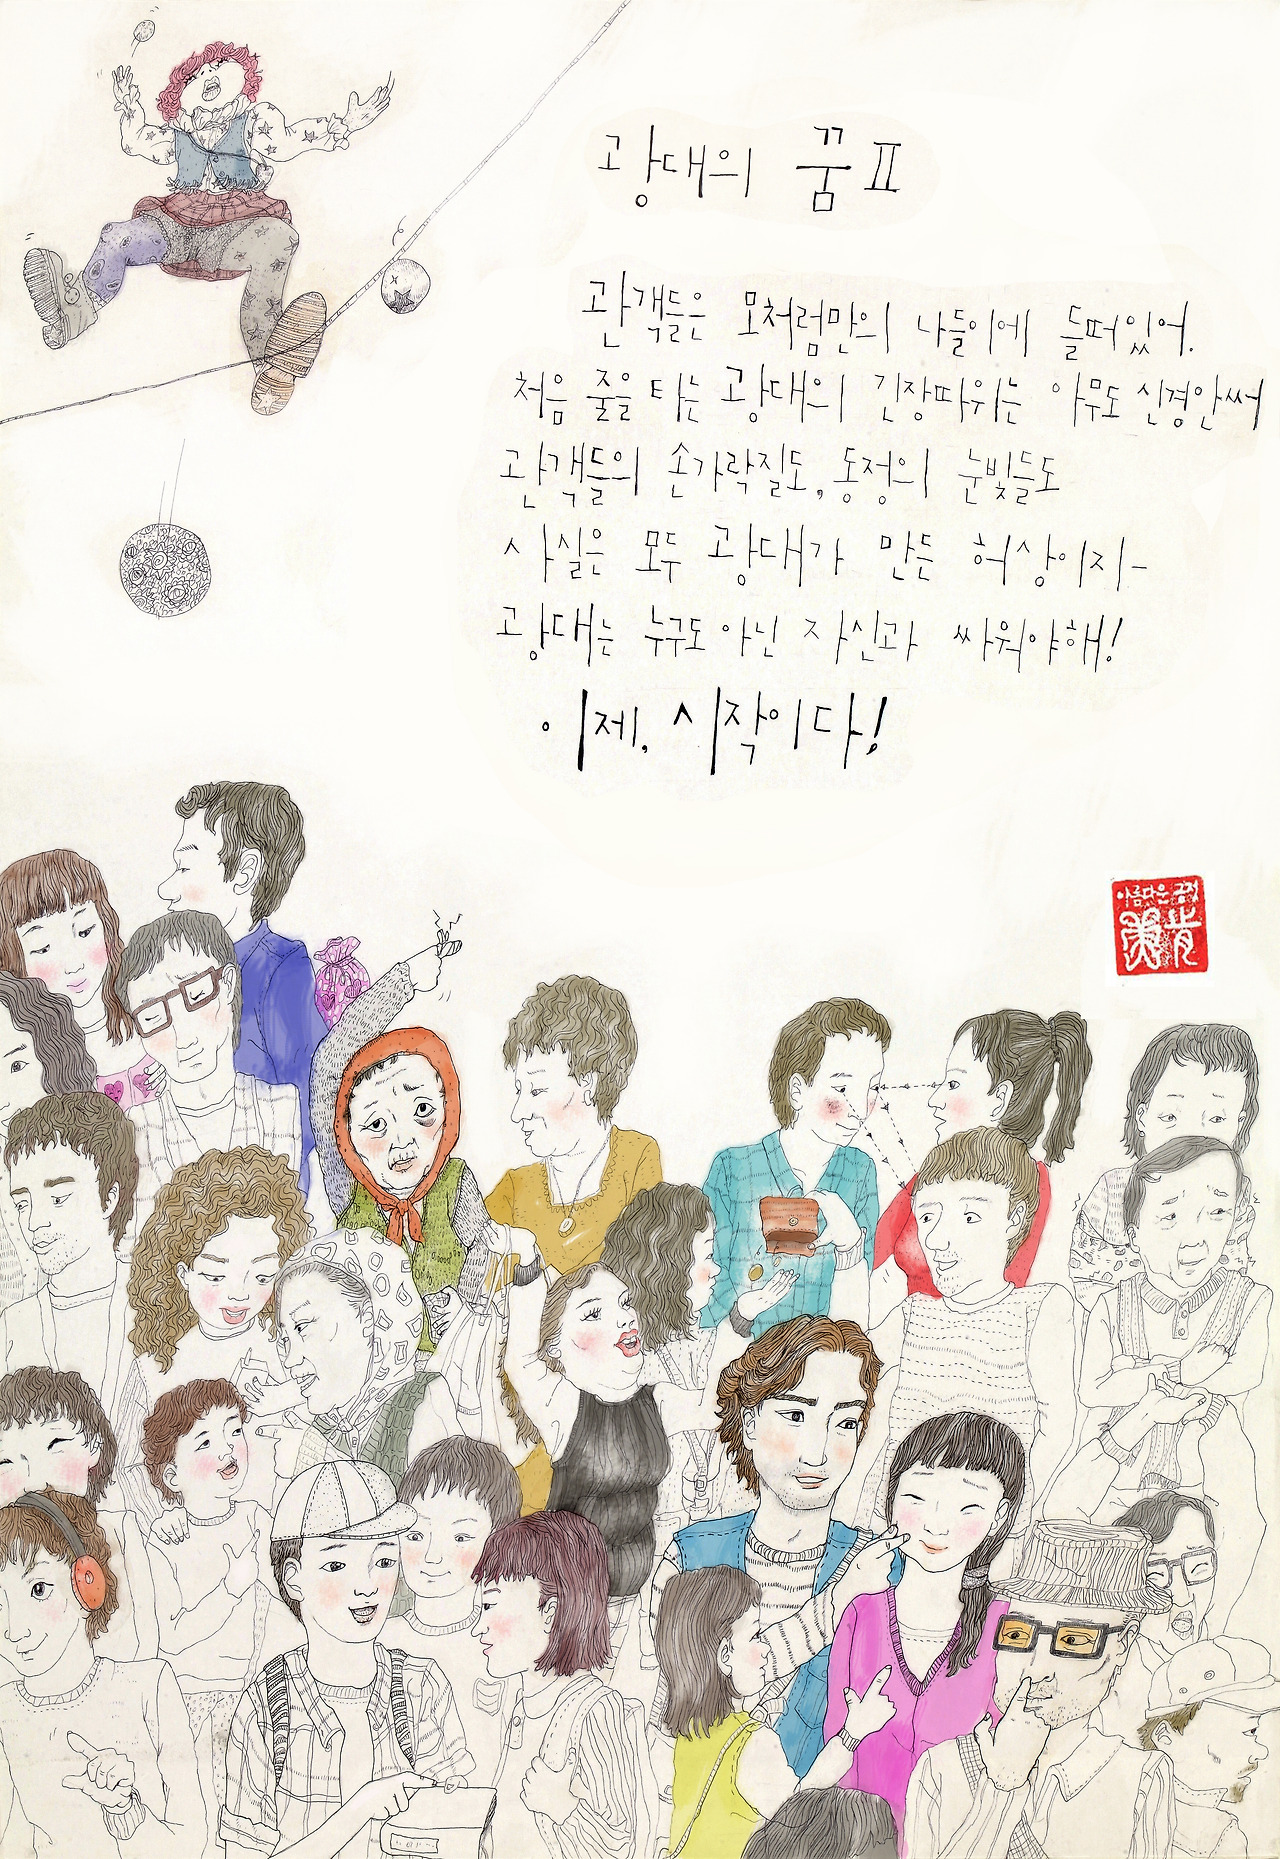 광대의 꿈 II
관객들은 모처럼만의 나들이에 들떠있어.
처음 줄을 타는 광대의 긴장따위는 아무도 신경안써
관객들의 손가락질도, 동정의 눈빛들도
사실은 모두 광대가 만든 허상이지-
광대는 누구도 아닌 자신과 싸워야해!
이제, 시작이다!
아름다운 긍정
美肯